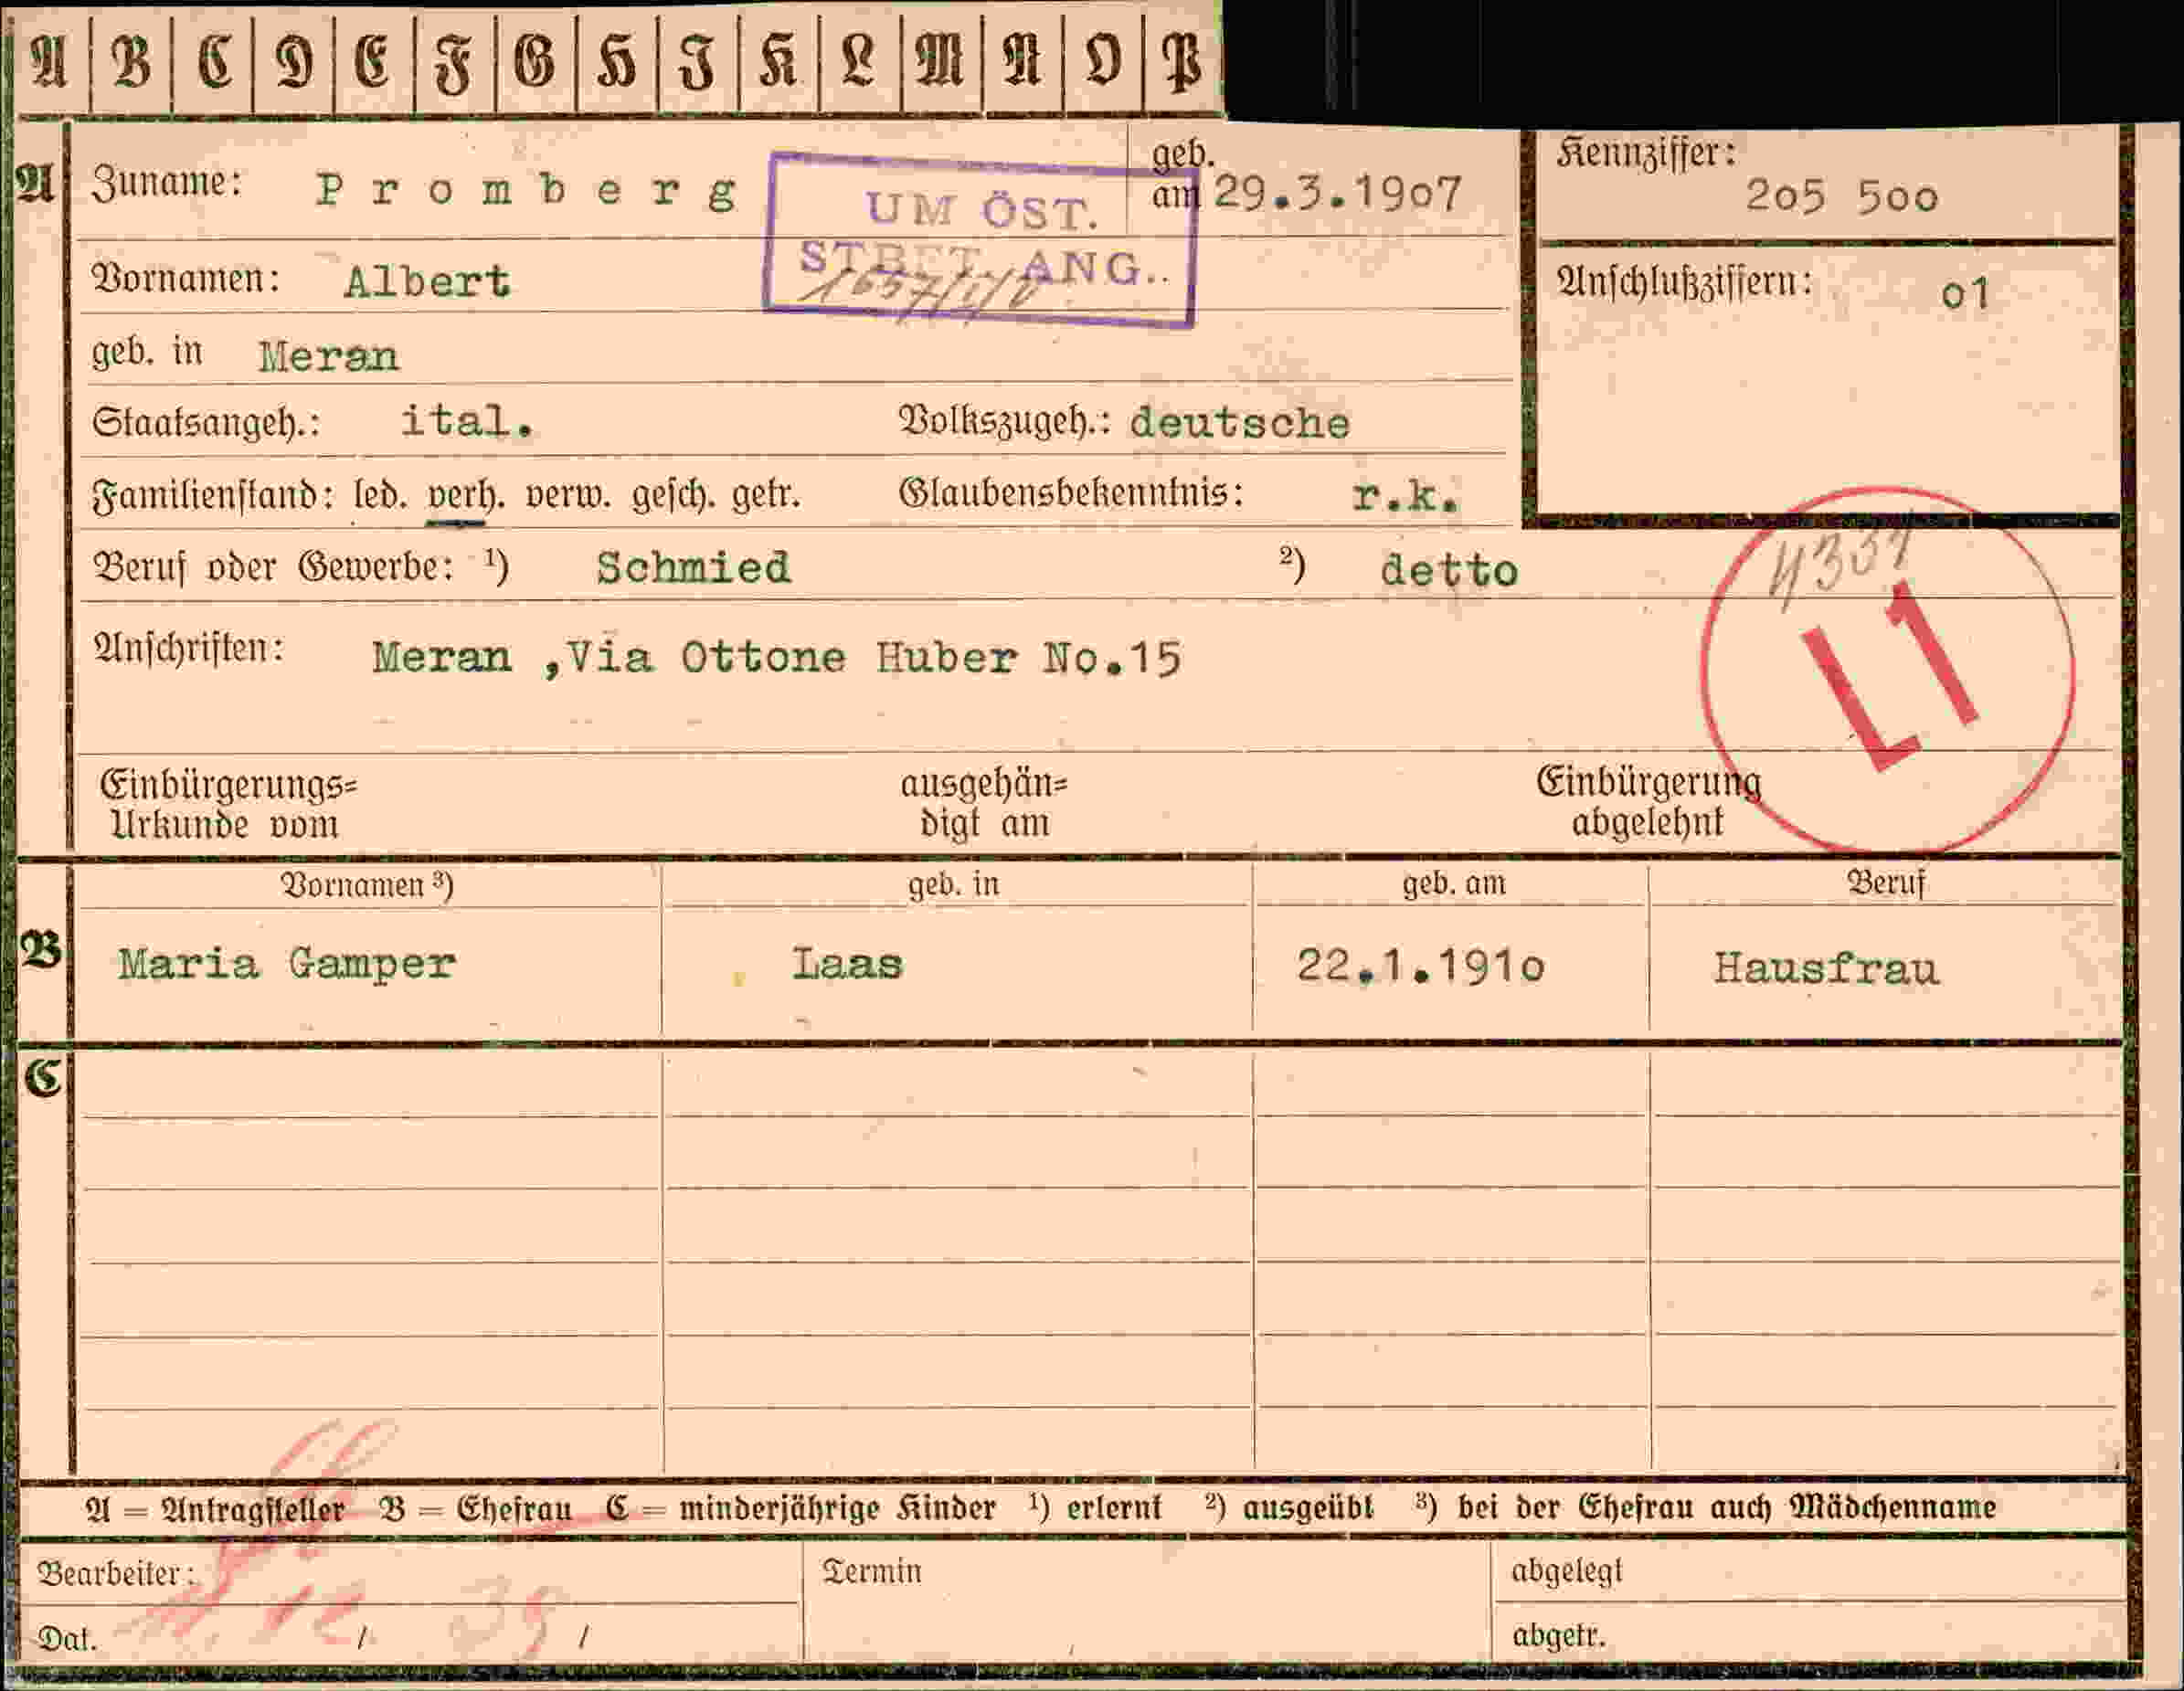 A B C D E F G H I K L M N O P
A Zuname: Promberg geb. am 29.3.1907
Kennziffer: 205 500
UM ÖST.
STBET. ANG..
Vornamen: Albert
Anschlußziffern: 01
geb. in Meran
Staatsangeh.: ital. Volkszugeh.: deutsche
Familienstand: led. verh. verw. gesch. getr. Glaubensbekenntnis: r.k.
Beruf oder Gewerbe: ¹) Schmied ²) detto
L1
Anschriften: Meran ,Via Ottone Huber No.15
Einbürgerungs= ausgehän= Einbürgerung
Urkunde vom digt am abgelehnt
Vornamen ³) geb. in geb. am Beruf
B Maria Gamper Laas 22.1.1910 Hausfrau
C
A = Antragsteller B = Ehefrau C = minderjährige Kinder ¹) erlernt ²) ausgeübt ³) bei der Ehefrau auch Mädchenname
Bearbeiter: Termin abgelegt
Dat. / 39 / abgetr.